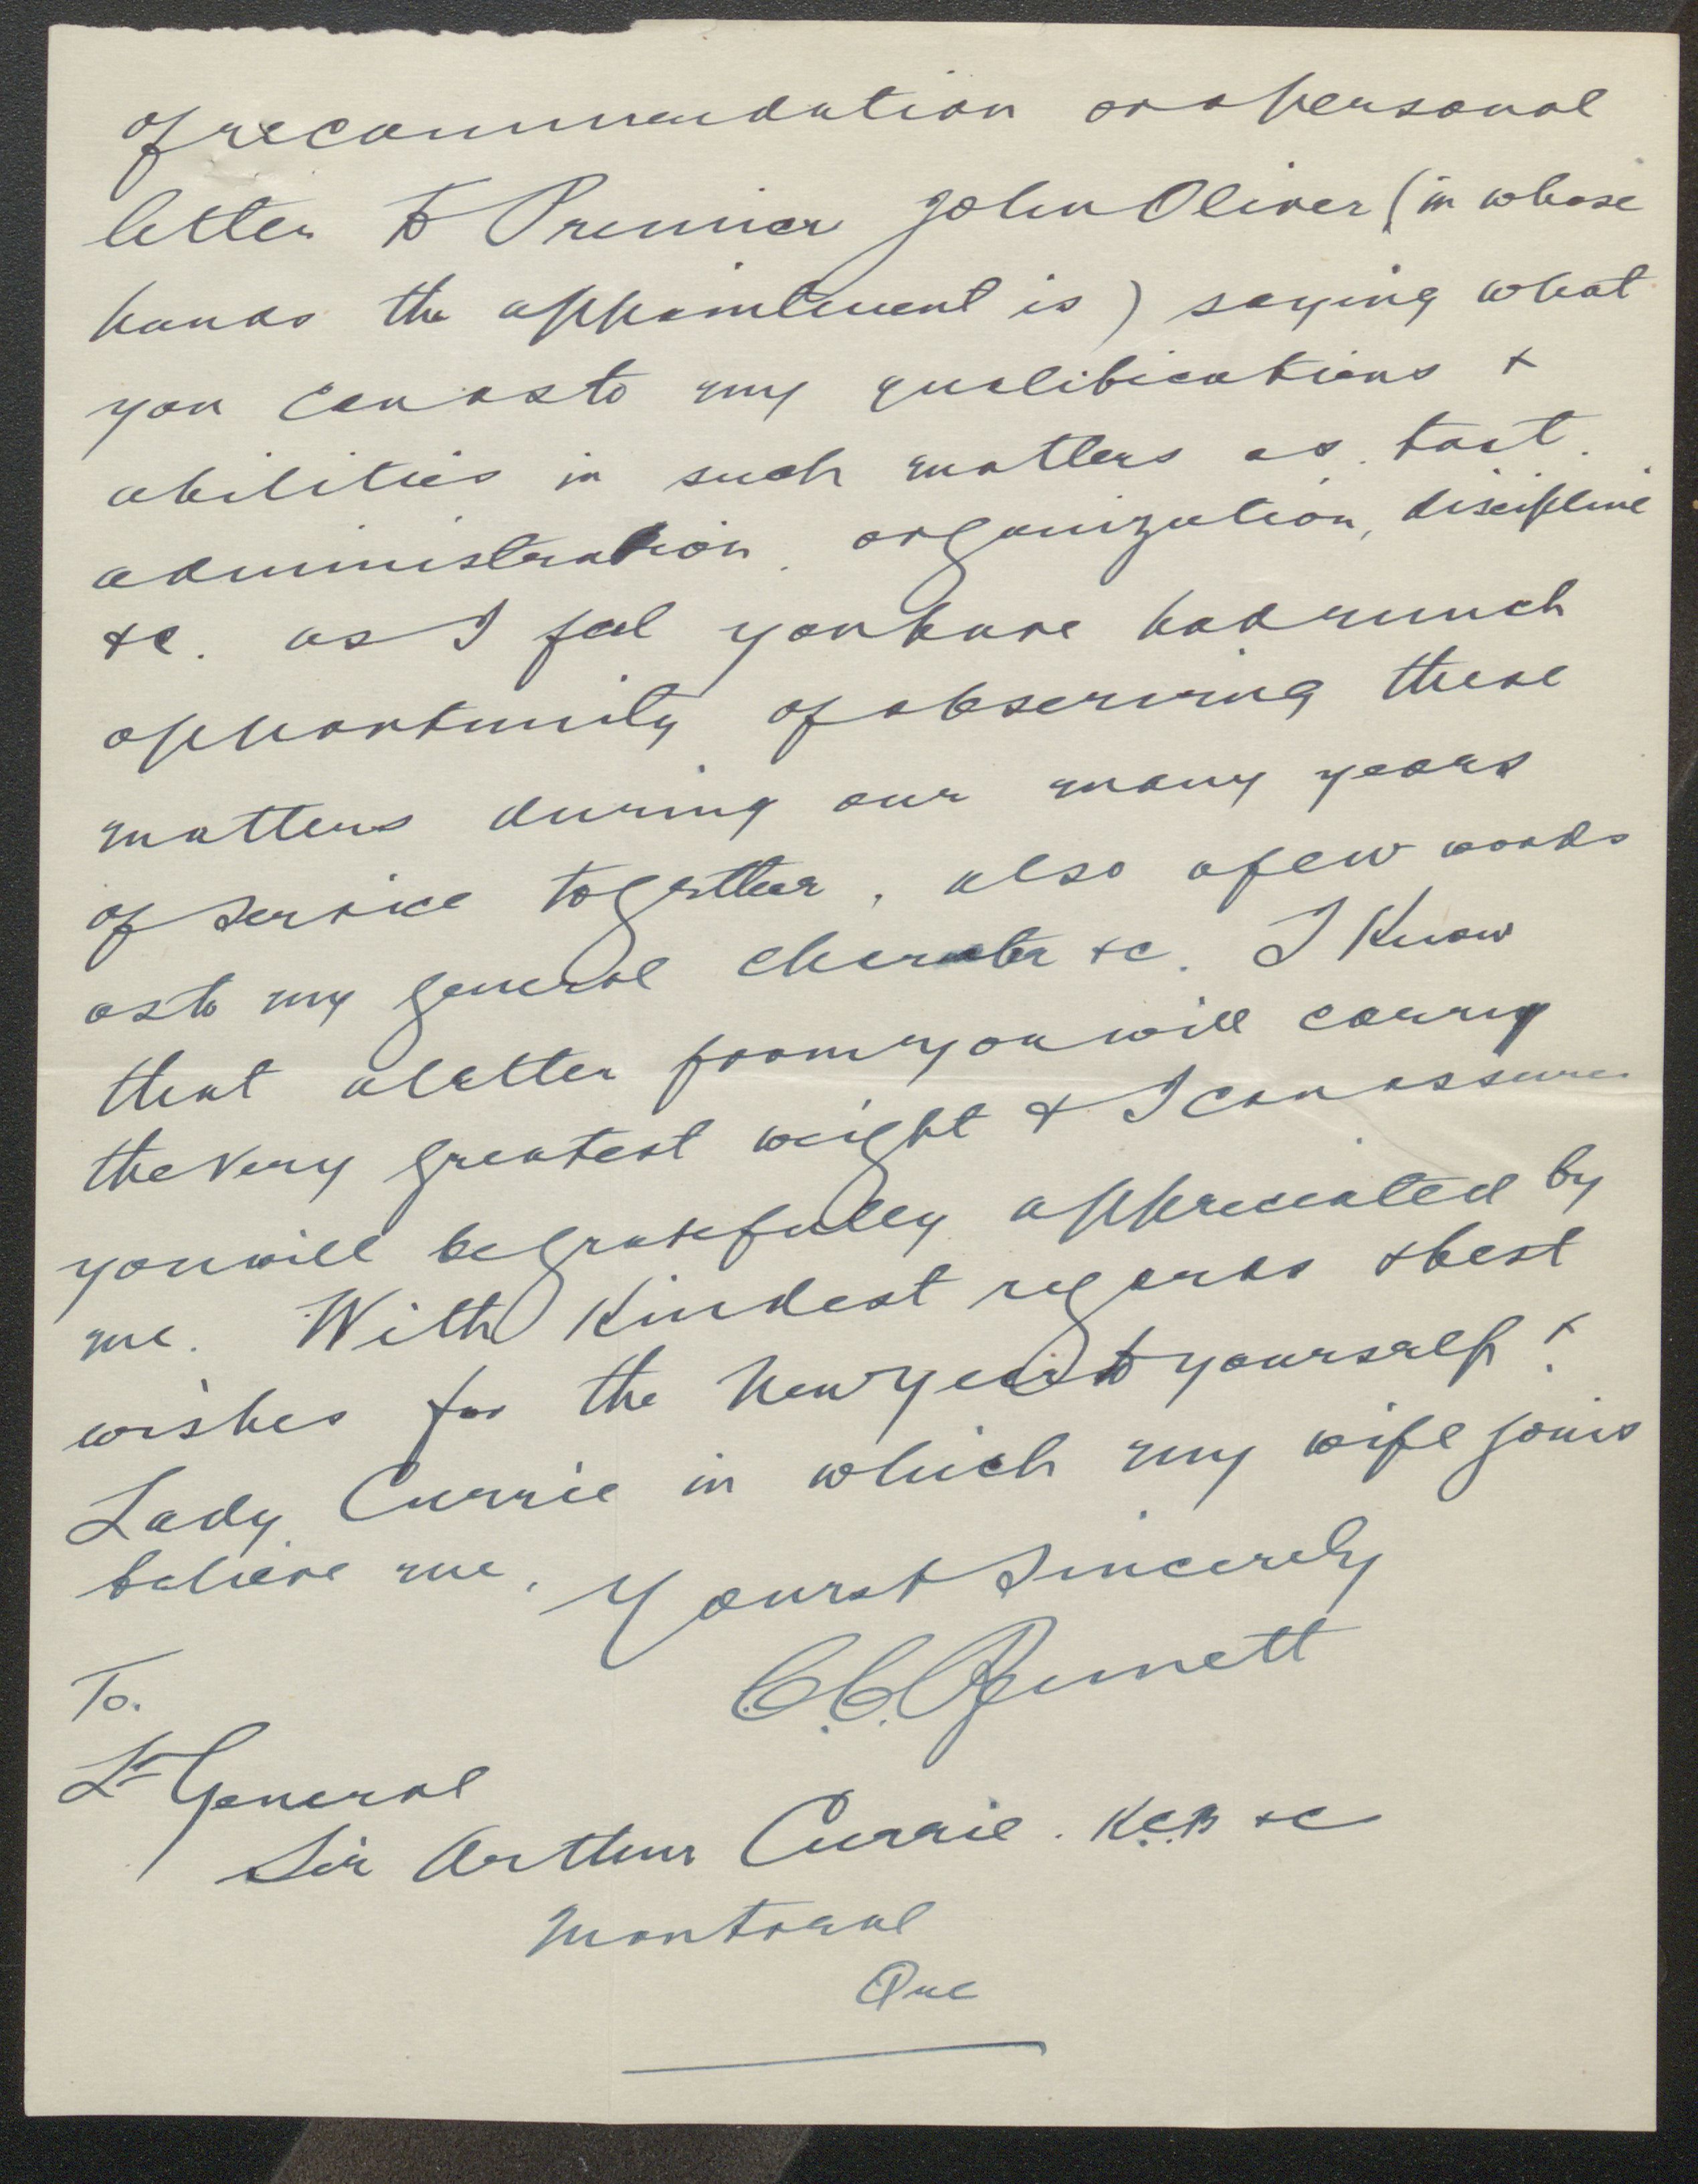 of recommendation or a personal
letter to Premier John Oliver (in whose
hands the appointment is) saying what
you can as to my qualifications &
abilities in such matters as tact.
administration, organization, discipline
&c. as I feel you have had much
opportunity of observing these
matters during our many years
of service together, also a few words
as to my general character &c. I know
that a letter from you will carry
the very greatest weight & I can assure
you will be gratefully appreciated by
me. With kindest regards & best
wishes for the New Year to yourself &
Lady Currie in which my wife joins
believe me, Yours Sincerely
C.C. Bennett
To.
Lt General
Sir Arthur Currie. K.C.B &c
Montreal
Que